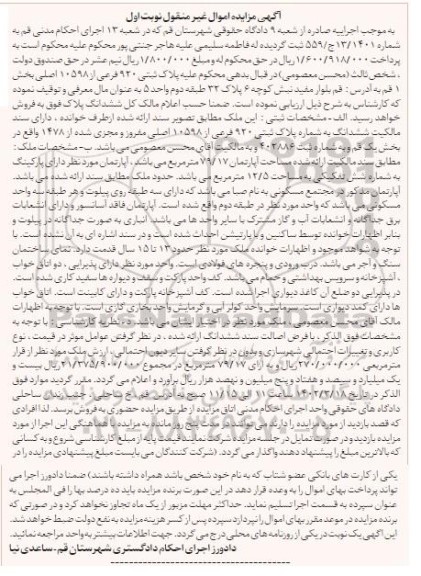 آگهی مزایده اموال غیر منقول نوبت اول
به موجب اجراییه صادره از شعبه ۹ دادگاه حقوقی شهرستان قم که در شعبه ۱۳ اجرای احکام مدنی قم به
شماره ۱۳/۱۴۰۱ج/۵۵۹ ثبت گردیده له فاطمه سلیمی علیه هاجر جنتی پور محکوم علیه محکوم است به
پرداخت ۱/۶۰۰/۹۱۸/۰۰۰ ریال در حق محکوم له و مبلغ ۱/۸۰۰/۰۰۰ ریال نیم عشر در حق صندوق دولت
، شخص ثالث (محسن معصومی) در قبال بدهی محکوم علیه پلاک ثبتی ۹۲۰ فرعی از ۱۰۵۹۸ اصلی بخش
۱ قم به آدرس : قم بلوار مفید نبش کوچه ۶ پلاک ۳۲ طبقه دوم واحد ۵ به عنوان مال معرفی و توقیف نموده
که کارشناس به شرح ذیل ارزیابی نموده است. ضمنا حسب اعلام مالک کل ششدانگ پلاک فوق به فروش
خواهد رسید. الف - مشخصات ثبتی : این ملک مطابق تصویر سند ارائه شده ازطرف خوانده ، دارای سند
مالکیت ششدانگ به شماره پلاک ثبتی ۹۲۰ فرعی از ۱۰۵۹۸ اصلی مفروز و مجزی شده از ۱۴۷۸ واقع در
بخش یک قم و به شماره ثبت ۴۰۲۸۸۶ و به مالکیت آقای محسن معصومی می باشد. ب- مشخصات ملک :
مطابق سند مالکیت ارائه شده مساحت آپارتمان ۷۹/۱۷ مترمربع می باشد ، آپارتمان مورد نظر دارای پارکینگ
به شماره شش تفکیکی به مساحت ۱۲/۵ مترمربع می باشد. حدود ملک مطابق سند ارائه شده می باشد.
آپارتمان مذکور در مجتمع مسکونی به نام صبا می باشد که دارای سه طبقه روی پیلوت و هر طبقه سه واحد
مسکونی می باشد که واحد مورد نظر در طبقه دوم واقع شده است. آپارتمان فاقد آسانسور و دارای انشعابات
برق جداگانه و انشعابات آب و گاز مشترک با سایر واحد ها می باشد. انباری به صورت جداگانه در پیلوت و
بنابر اظهارات خوانده توسط ساکنین و با پارتیشن احداث شده است و در سند اشاره ای به آن نشده است. با
توجه به شواهد موجود و اظهارات خوانده ملک مورد نظر حدود ۱۳ تا ۱۵ سال قدمت دارد. نمای ساختمان
سنگ و آجر می باشد. درب ورودی و پنجره های فولادی است. واحد مورد نظر دارای پذیرایی ، دو اتاق خواب
، آشپزخانه و سرویس بهداشتی و حمام می باشد. کف واحد پارکت و سقف و دیواره ها سفید کاری شده است.
در پذیرایی دو ضلع آن کاغد دیواری اجرا شده است. کف آشپزخانه پارکت و دارای کابینت است. اتاق خواب
ها دارای کمد دیواری است. سرمایش واحد کولر آبی و گرمایش واحد بخاری گازی است. با توجه به اظهارات
مالک آقای محسن معصومی، ملک مورد نظر در اختیار ایشان می باشد. ج - نظریه کارشناسی : با توجه به
مشخصات فوق الذکر ، با فرض اصالت سند ششدانگ ارائه شده ، در نظر گرفتن عوامل موثر در قیمت ، نوع
کاربری و تغییرات احتمالی شهرسازی و بدون در نظر گرفتن سایر دیون احتمالی ، ارزش ملک مورد نظر از قرار
مترمربعی ۲۷۰/۰۰۰/۰۰۰ ریال و به ازای ۷۹/۱۷ مترمربع در مجموع ۲۱/۳۷۵/۹۰۰/۰۰۰ ریال بیست و
یک میلیارد و سیصد و هفتاد و پنج میلیون و نهصد هزار ریال برآورد و اعلام می گردد. مقرر گردید موارد فوق
الذکر در تاریخ ۱۴۰۲/۳/۱۸ ساعت ۱۱ الی ۱۱/۱۵ صبح به آدرس قم خ ساحلی جنب پل ساحلی
دادگاه های حقوقی واحد اجرای احکام مدنی اتاق مزایده از طریق مزایده حضوری به فروش برسد. لذا افرادی
که قصد بازدید از مورد مزایده را دارند می توانند ظرف مدت پنج روز مانده به مزایده با هماهنگی این اجرا از مورد
مزایده بازدید و در صورت تمایل در جلسه مزایده شرکت نمایند قیمت پایه از مبلغ کارشناسی شروع و به کسانی
که بالاترین مبلغ را پیشنهاد دهند واگذار می گردد. (شرکت کنندگان می بایست مبلغ پیشنهادی مزایده را در
یکی از کارت های بانکی عضو شتاب که به نام خود شخص باشد همراه داشته باشند) ضمنا دادورز اجرا می
تواند پرداخت بهای اموال را به وعده قرار دهد در این صورت برنده مزایده باید ده درصد بها را فی المجلس به
عنوان سپرده به قسمت اجرا تسلیم نماید. حداکثر مهلت مزبور از یک ماه تجاوز نخواهد کرد و در صورتی که
برنده مزایده در موعد مقرر بهای اموال را نپردازد سپرده پس از کسر هزینه مزایده به نفع دولت ضبط خواهد شد.
این آگهی یک نوبت در یکی از روزنامه های محلی درج می گردد. جهت اطلاعات بیشتر به واحد مراجعه نمائید.
دادورز اجرای احکام دادگستری شهرستان قم ، ساعدی نیا